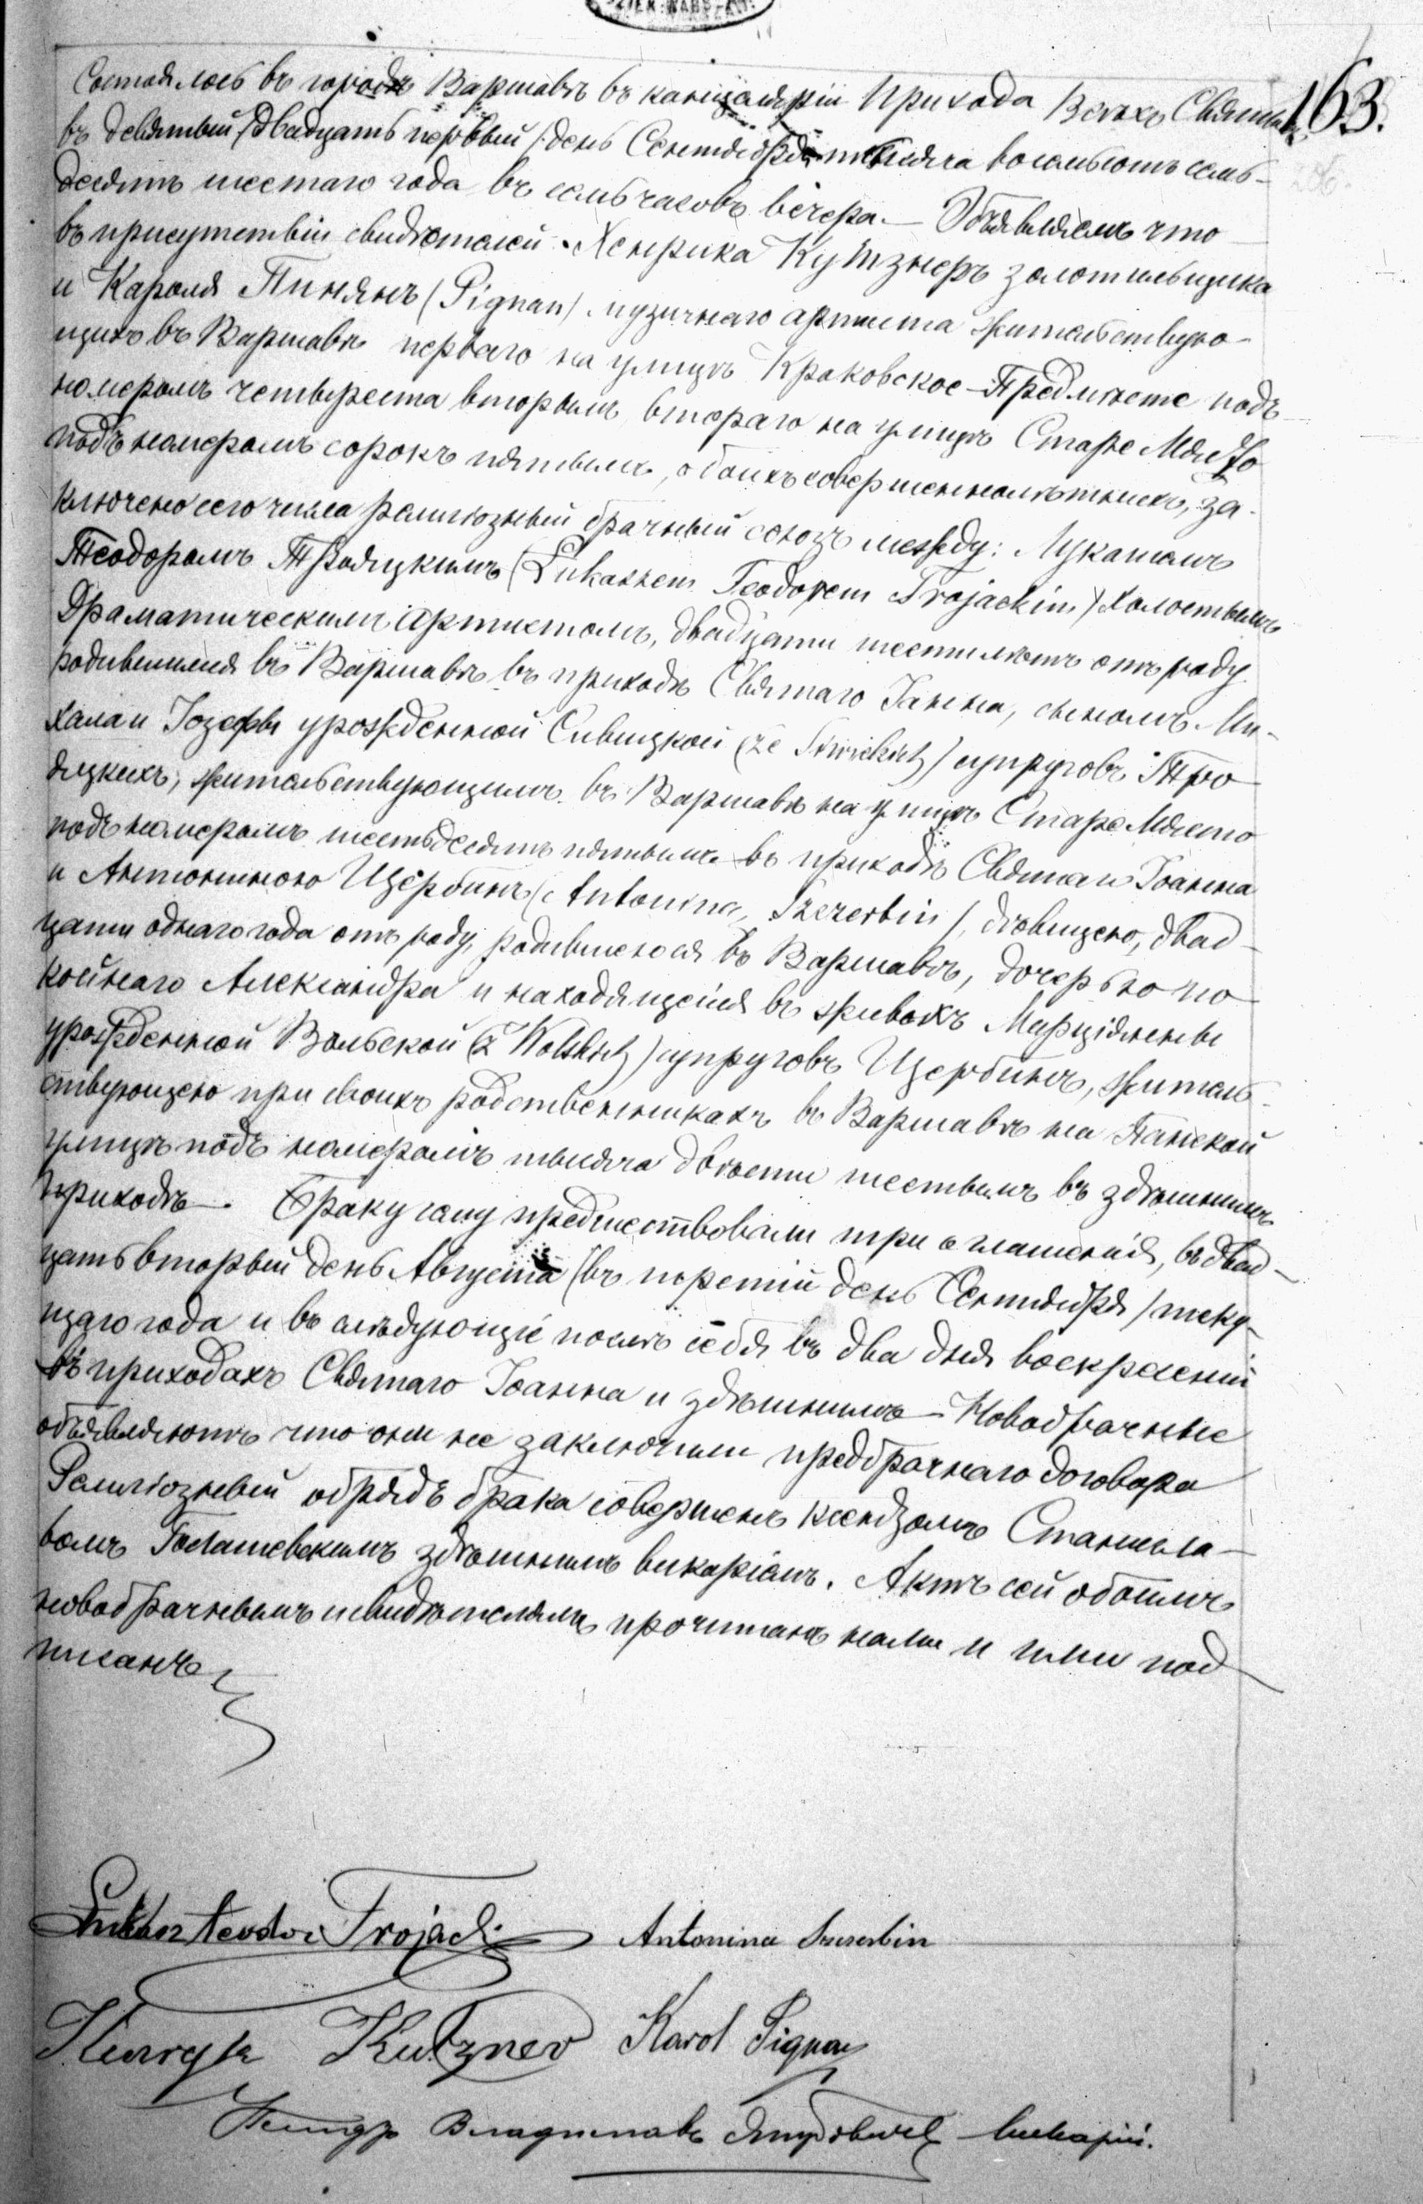 163.
Состоялось въ городѣ Варшавѣ въ канцеляріи Прихода Всѣхъ Святыхъ
въ девятый /двадцать первый/ день Сентября тысяча восемьсотъ семь-
десятъ шестаго года въ семь часовъ вечера. — Объявляемъ что
въ присутствіи свидѣтелей Хенрика Кутзнеръ золотильщика
и Кароля Пинянъ (Pignan) музычнаго артиста жительствую-
щихъ въ Варшавѣ перваго на улицѣ Краковское-Предмѣсте подъ
номеромъ четыреста вторымъ, втораго на улицѣ Старе Място
подъ номеромъ сорокъ пятымъ, обоихъ совершеннолѣтнихъ, за-
ключено сего числа религіозный брачный союзъ между: Лукашомъ
Теодоромъ Трояцкимъ (Łukaszem Teodorem Trojackim) холостымъ
Драматическимъ Артистомъ, двадцати шести лѣтъ отъ роду
родившимся въ Варшавѣ въ приходѣ Святаго Іанна, сыномъ Ми-
хала и Іозефы урожденной Сивицкой (ze Siwickich) супруговъ Тро
яцкихъ, жительствующимъ въ Варшавѣ на улицѣ Старе Място
подъ номеромъ шестьдесятъ пятымъ въ приходѣ Святаго Іоанна
и Антониною Щербинъ (Antonina Szczerbin), дѣвицею, двад-
цати однаго года отъ роду, родившеюся въ Варшавѣ, дочерью по
койнаго Александра и находящейся въ живыхъ Марціянны
урожденной Вольской (z Wolskich) супруговъ Щербинъ, житель-
ствующею при своихъ родственникахъ въ Варшавѣ на Панской
улицѣ подъ номеромъ тысяча двѣсти шестымъ въ здѣшнимъ
приходѣ. Браку сему предшествовали три оглашенія, въ двад-
цать вторый день Августа (въ третій день Сентября) теку-
щаго года и въ слѣдующіе послѣ себя въ два дня воскресеній
въ приходахъ Святаго Іоанна и здѣшнимъ — Новобрачные
объявляютъ что они не заключили предбрачнаго договора
Религіозный обрядъ брака совершенъ ксендзомъ Станисла-
вомъ здѣшнимъ викаріемъ. Актъ сей обоимъ
новобрачнымъ и свидѣтелямъ прочитанъ нами и ими под
писанъ
Łukasz Teodor Trojacki Antonina Szczerbin
Henryk Kutzner Karol Pignan
Владиславъ викарій.